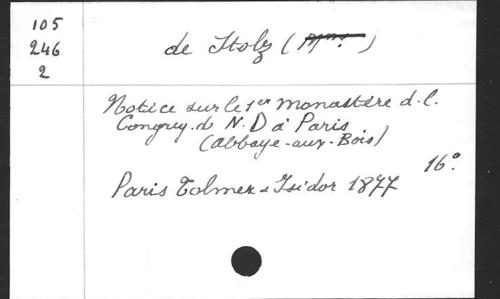 105
246
2
de Stolz (Mme.)
Notice sur le 1er Monastère d. l.
Congrég. d. N. D à Paris
(Abbaye-aux-Bois)
16°.
Paris Tolmer & Isidor 1877